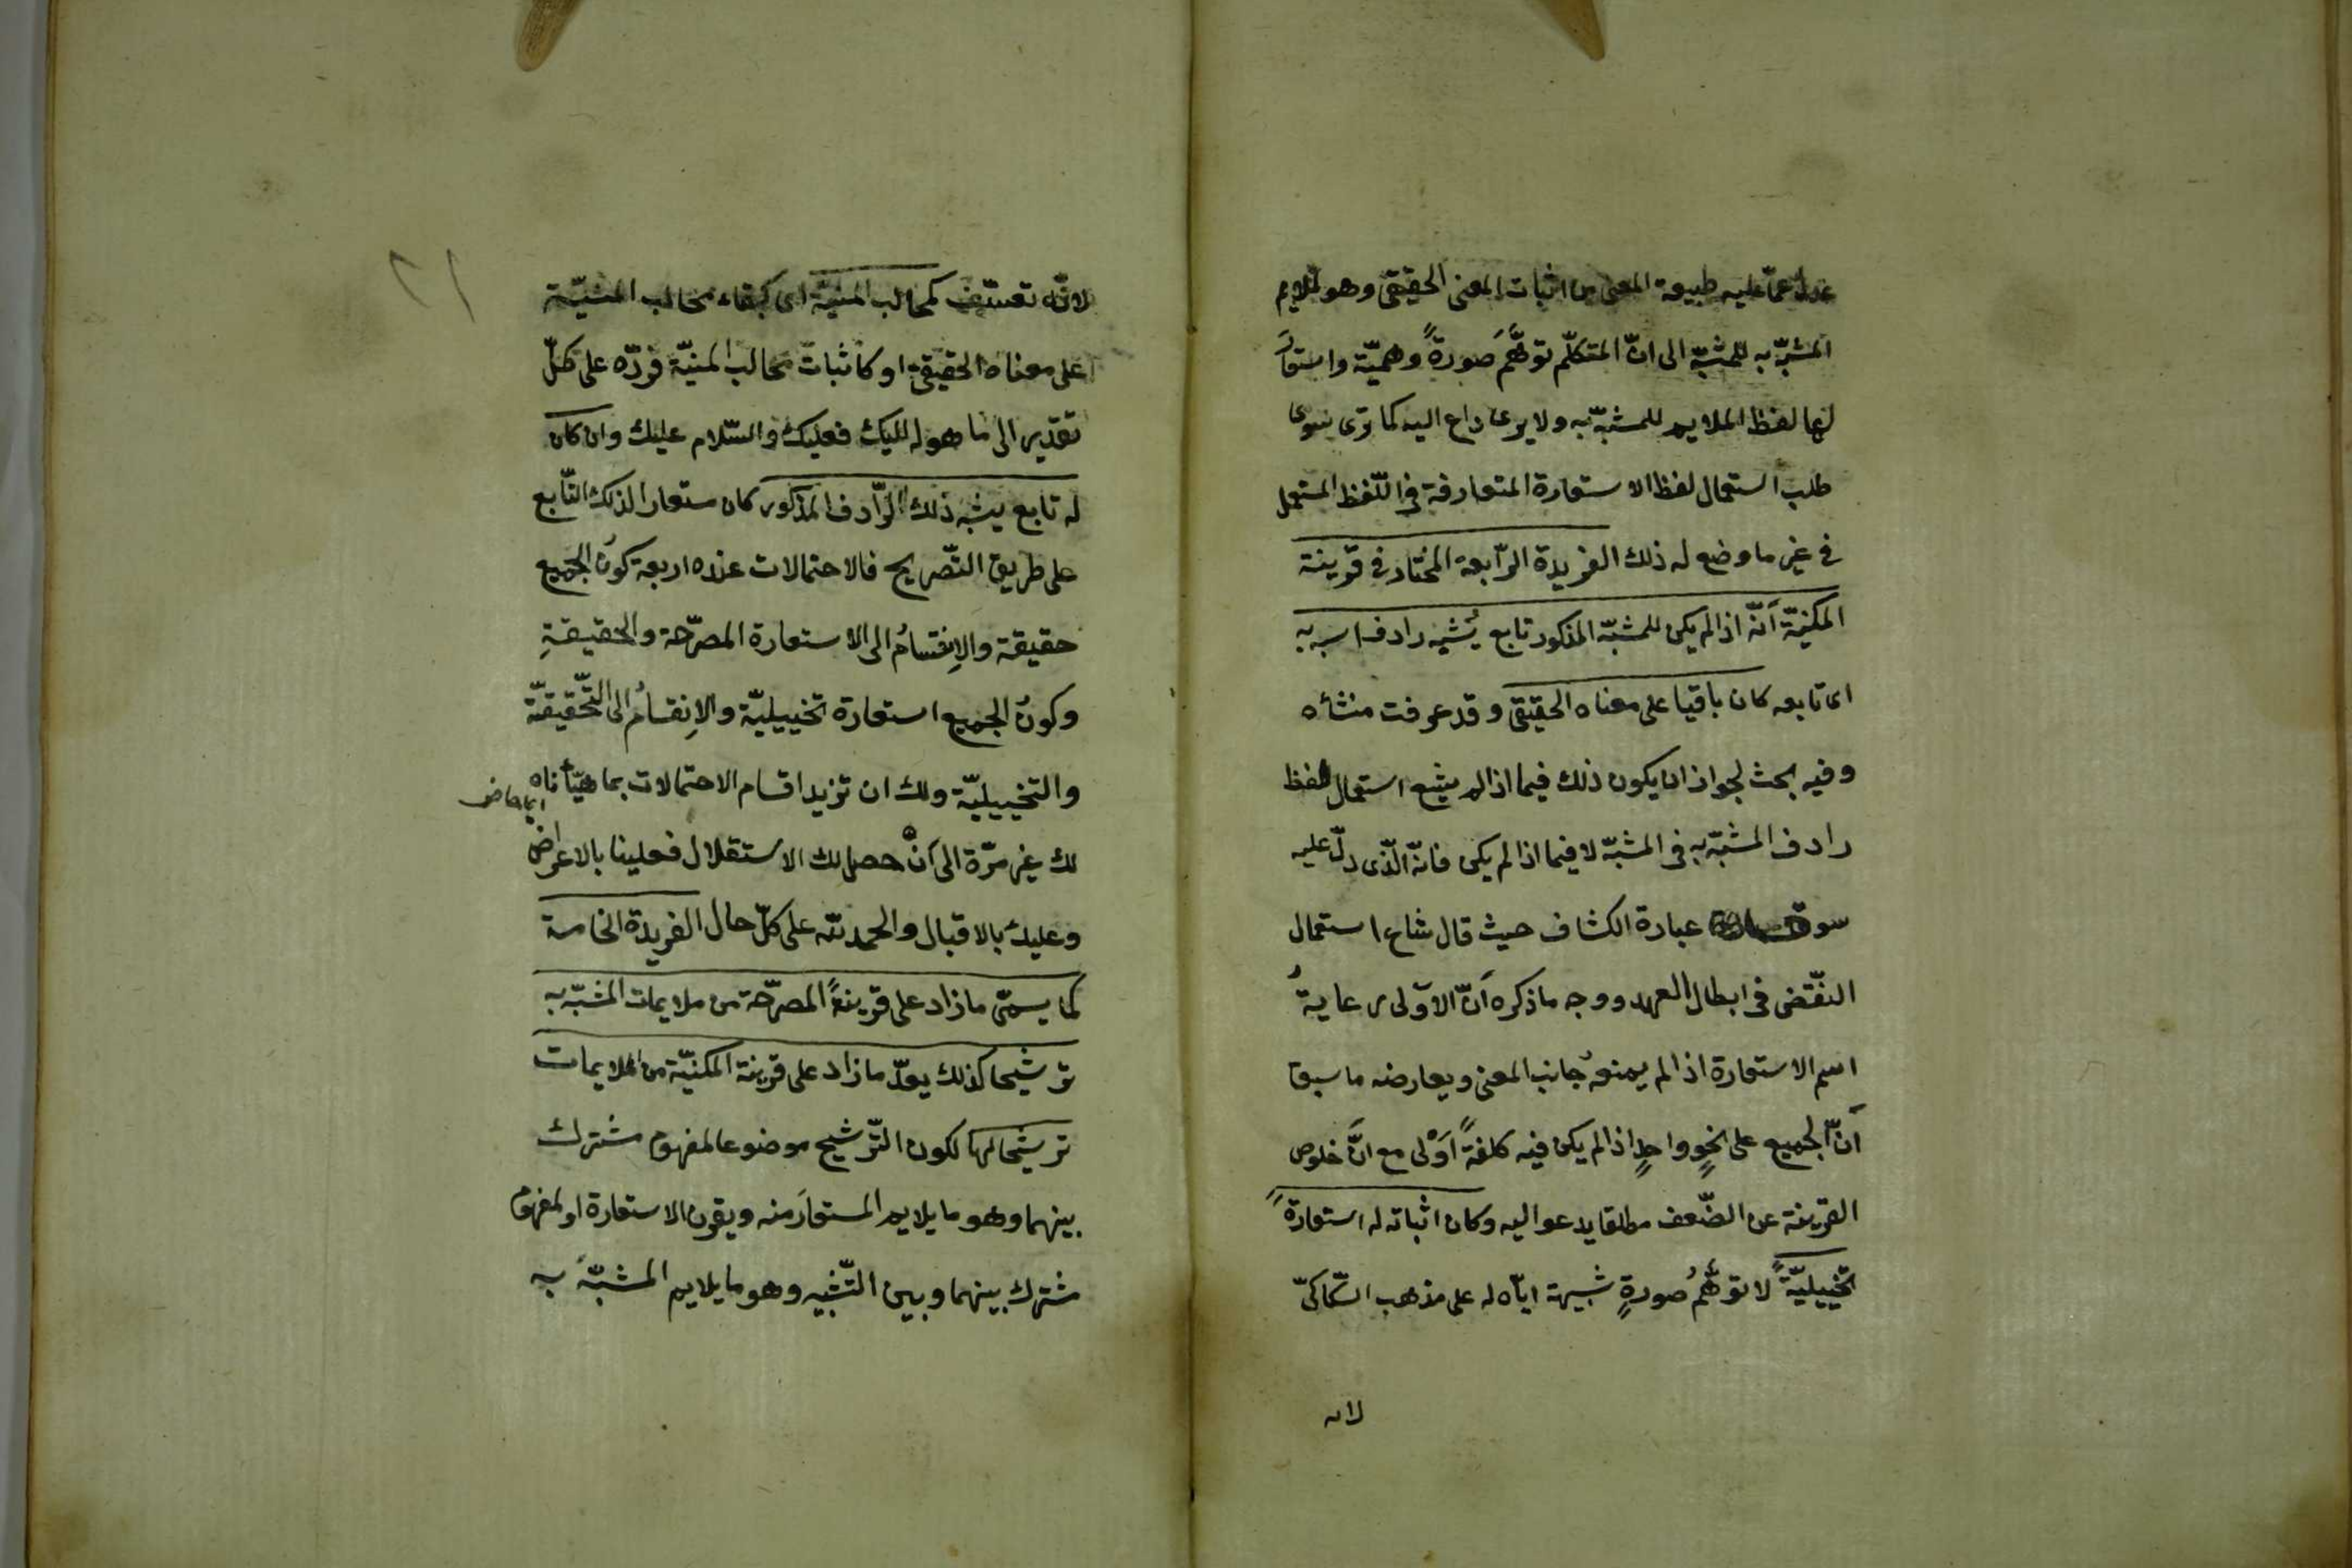 عدل عما عليه طبيعة المعنى من اثبات المعنى الحقيقى وهو ملايم
المشبّه به للمشبّه الى انّ المتكلّم توهّمَ صورةً وهميّة واستعارَ
لها لفظ الملايم للمشبّه به ولا يرى داع اليه كما ترى سوى
طلب استعمال لفظ الاستعارة المتعارفة فى اللّفظ المستعمل
فى غير ما وضع له ذلك الفريدة الرّابعة المختار فى قرينة
المكنيّة أنّه اذا لم يكن للمشبّه المذكور تابع يُشبه رادف المشبه به
اى تابعه كان باقيا على معناه الحقيقى وقد عرفت منشأه
وفيه بحث لجواز ان يكون ذلك فيما اذا لم يشع استعمال لفظ
رادف المشبّه به فى المشبّه لا فيما اذا لم يكن فانّه الّذى دلّ عليه
سوق عبارة الكشاف حيث قال شاع استعمال
النقّض فى ابطال العهد ووجه ما ذكره أنّ الاَولى رعايةُ
اسم الاستعارة اذا لم يمنعه جانب المعنى ويعارضه ما سبق
أنّ الجميع على نحوٍ واحدٍ اذا لم يكن فيه كلفةً اَوْلى مع انّ خلوص
القرينة عن الضّعف مطلقا يدعو اليه وكان اثباته له استعارةً
تخييليّةً لا توهّمُ صورةٍ شبيهة ايّاه له على مذهب السّكاكىّ
لانه
لانّه تعسّف كمخالب المنيّة اى كبقاء مخالب المنيّة
على معناه الحقيقى او كاثبات مخالب المنيّة فردّه على كلّ
تقدير الى ما هو له اليك فعليك والسّلام عليك وان كان
له تابع يشبه ذلك الرّادف المذكور كان مستعارا لذلك التّابع
على طريق التّصريح فالاحتمالات عنده اربعة كونُ الجميع
حقيقة والاِنقسامُ الى الاستعارة المصرّحة والحقيقةِ
وكونُ الجميع استعارة تخييليّة والاِنقسامُ الى التّحقيقيّة
والتخييليّة ولك ان تزيد اقسام الاحتمالات بما هيّأناه
لك غير مرّة الى اَنْ حصل لك الاستقلال فعلينا بالاعراض
وعليك بالاقبال والحمد للّه على كلّ حال الفريدة الخامسة
كما يسمّى ما زاد على قرينةً المصرّحة من ملايمات المشبّه به
ترشيحا كذلك يعدّ ما زاد على قرينة المكنيّة من الملايمات
ترشيحا لها لكون التّرشيح موضوعا لمفهوم مشترك
بينهما وهو ما يلايم المستعارَ منه ويقرن الاستعارة او لمفهوم
مشترك بينهما وبين التّشبيه وهو ما يلايم المشبّهَ به